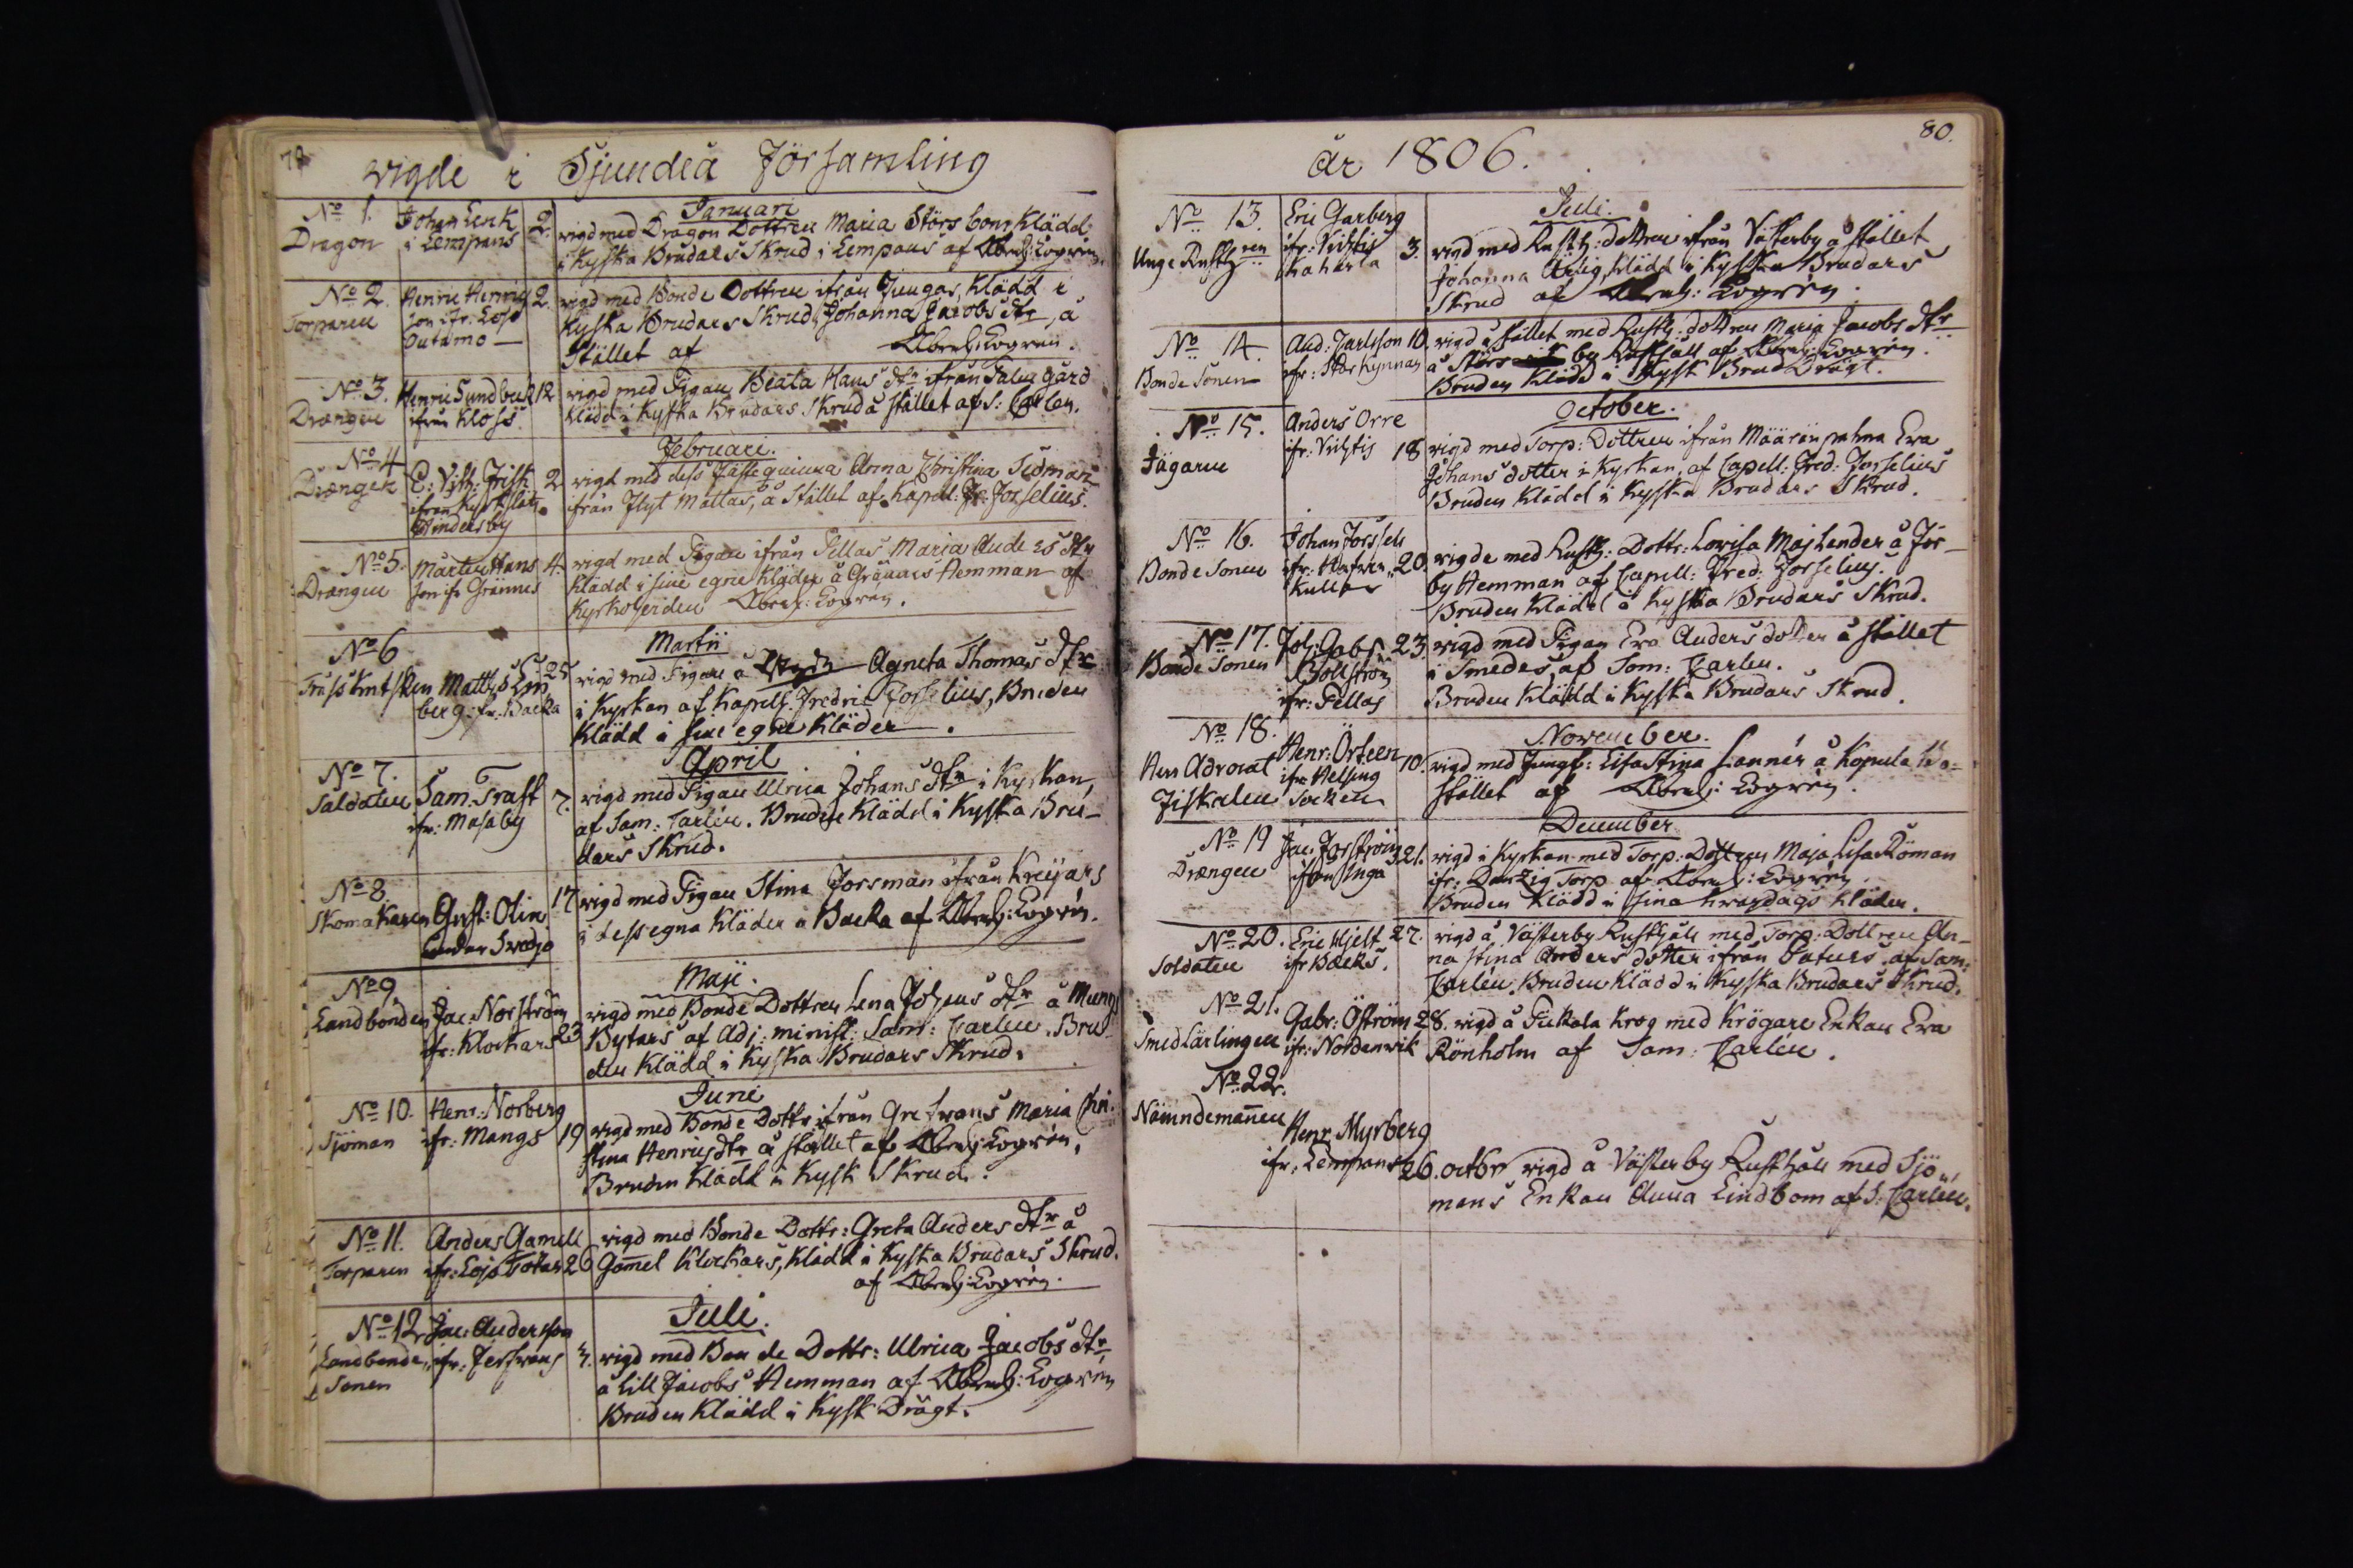 79
wigde i Sjundeå Församling
Januari
No 1. Dragon
Johan Lenk i Lempans
2.
wigd med Dragon Dottren Maria Störsbom klädd
i kyska Brudars Skrud i Lempans af Abrah: Logrén.
No 2. Torparen
Henric Henrics
son ifr: Lojo
Outamo
2.
wigd med Bonde Dottren ifrån Jungas, klädd i
kyska Brudars Skrud, Johanna Jacobs dtr, å
Stället af Abrah: Logrén.
No 3. Drängen
Henric Sundbeck
ifrån Kloss.
12
wigd med Pigan Beata Hans dtr ifrån gård
klädd i kyska Brudars Skrud å stället af S: Carlen.
Februari.
No 4 Drängen
C: Vilh: Frisk
ifrån Kyrkslätt
Hindersby
2
wigd med dess Fästeqvinna Anna Christina Sidman
ifrån Flyt Mattas, å Stället af Kapell: Fr. Forselius.
No 5. Drängen
Mårten Hans
son ifr Grännes
4.
wigd med Pigan ifrån Pellas Maria Anders dtr
klädd i sine egne kläder å Grännes Hemman af
Kyrkoherden Abrah: Logrén.
Martii
No 6
Matths Lin
berg: fr: Backa
25
wigd med Pigan å Agneta Thomas dtr
i Kyrkan af Kapell: Fredric Forselius, Bruden
klädd i sine egne kläder.
April
No 7. Saldaten
Sam: Trast
ifr: Masaby
7.
wigd med Pigan Ulrica Johans dtr i Kyrkan,
af Sam: Carlén. Bruden klädd i kyska Bru-
dars Skrud.
No 8. Skomakaren
Gust: Olin
Svedja
17
wigd med Pigan Stina Forsman ifrån Kreijars
i dess egna kläder å Backa af Abrah: Logrén.
Maji.
No 9. Landbonden
Jac: Norström
ifr: Klockars
23
wigd med Bonde Dottren Lena Johans dtr å Mungs
Bytars af Adj: minist: Sam: Carlen. Bru-
den klädd i kyska Brudars Skrud.
Juni
No 10. Sjöman
Henr: Norberg
ifr: Mangs
19
wigd med Bonde Dottr: ifrån Grefvans Maria Chri-
stina Henrics dtr å stället af Abrah: Logrén,
Bruden klädd i kysk Skrud.
No 11. Torparen
Anders Gamell
ifr: Lojo Totar
26
wigd med Bonde Dottr: Greta Anders dtr å
Gam̅el Klockars, klädd i kyska Brudars Skrud.
af Abrah: Logrén.
Juli.
No 12 Landbonde
Sonen
Jac: Andersson
ifr: Jerfvans
3.
wigd med Bonde Dottr: Ulrica Jacobs dtr
å Lill Jacobs Hemman af Abrah: Logrén
Bruden klädd i kysk Drägt.
år 1806.
80.
Juli.
No 13. Unge Rusthren
Eric Garberg
ifr: Vichtis
Kaharla
3.
wigd med Rusth: dottren ifrån Västerby å stället
Johanna Ärlig, klädd i kyska Brudars
Skrud af Abrah: Logrén.
No 14. Bonde Sonen
And: Carlsson
ifr: Stor Kynnar
10.
wigd å stället med Rusth: dottren Maria Jacobs dtr
å Störs by Rusthåll af Abrah: Logrén.
Bruden klädd i kysk Brud Drägt.
October.
No 15. Jägaren
Anders Orre
ifr: Vichtis
18
wigd med Torp: Dottren ifrån Määränpahna Eva
Johans dotter i Kyrkan, af Capell: Fred: Forselius
Bruden klädd i kyska Brudars Skrud.
No 16. Bonde Sonen
Johan Forssell
ifr: Hafrén,,
Kulla
20.
wigde med Rusth: Dottr: Lovisa Majlander å For-
by Hemman af Capell: Fred: Forselius.
Bruden klädd i kyska Brudars Skrud.
No 17. Bonde Sonen
Joh: Gabr:
Bollström
ifr: Pellas
23.
wigd med Pigan Eva Anders dotter å stället
i Smedes, af Sam: Carlen.
Bruden klädd i kyska Brudars Skrud.
November.
No 18. Herr Advocat
Fiskalen
Henr: Örteen
ifr: Helsing
Socken
10.
wigd med Jungf: Lisa Stina Lannér å Kopula
stället af Abrah: Logrén.
December
No 19 Drängen
Jac. Forström
ifrån Inga
21.
wigd i Kyrkan med Torp: Dottren Maja Lisa Röman
ifr: Danzig Torp af Abrah: Logrén.
Bruden klädd i sina hvardags kläder.
No 20. Soldaten
Eric Hjelt
ifr Bäcks.
27.
wigd å Västerby Rusthåll med Torp: Dottren An-
na Stina Anders dotter ifrån Baturs, af Sam:
Carlén. Bruden klädd i kyska Brudars Skrud.
No 21. Smed Lärlingen
Gabr: Öström
ifr: Nordanwik
28.
wigd å Pickala krog med krögare Enkan Eva
Rönholm af Sam: Carlén.
No 22. Nämndeman̅en
Henr Myrberg
ifr, Lempans
26. octbr
wigd å Västerby Rusthåll med Sjö-
mans Enkan Anna Lindbom af S: Carlén.